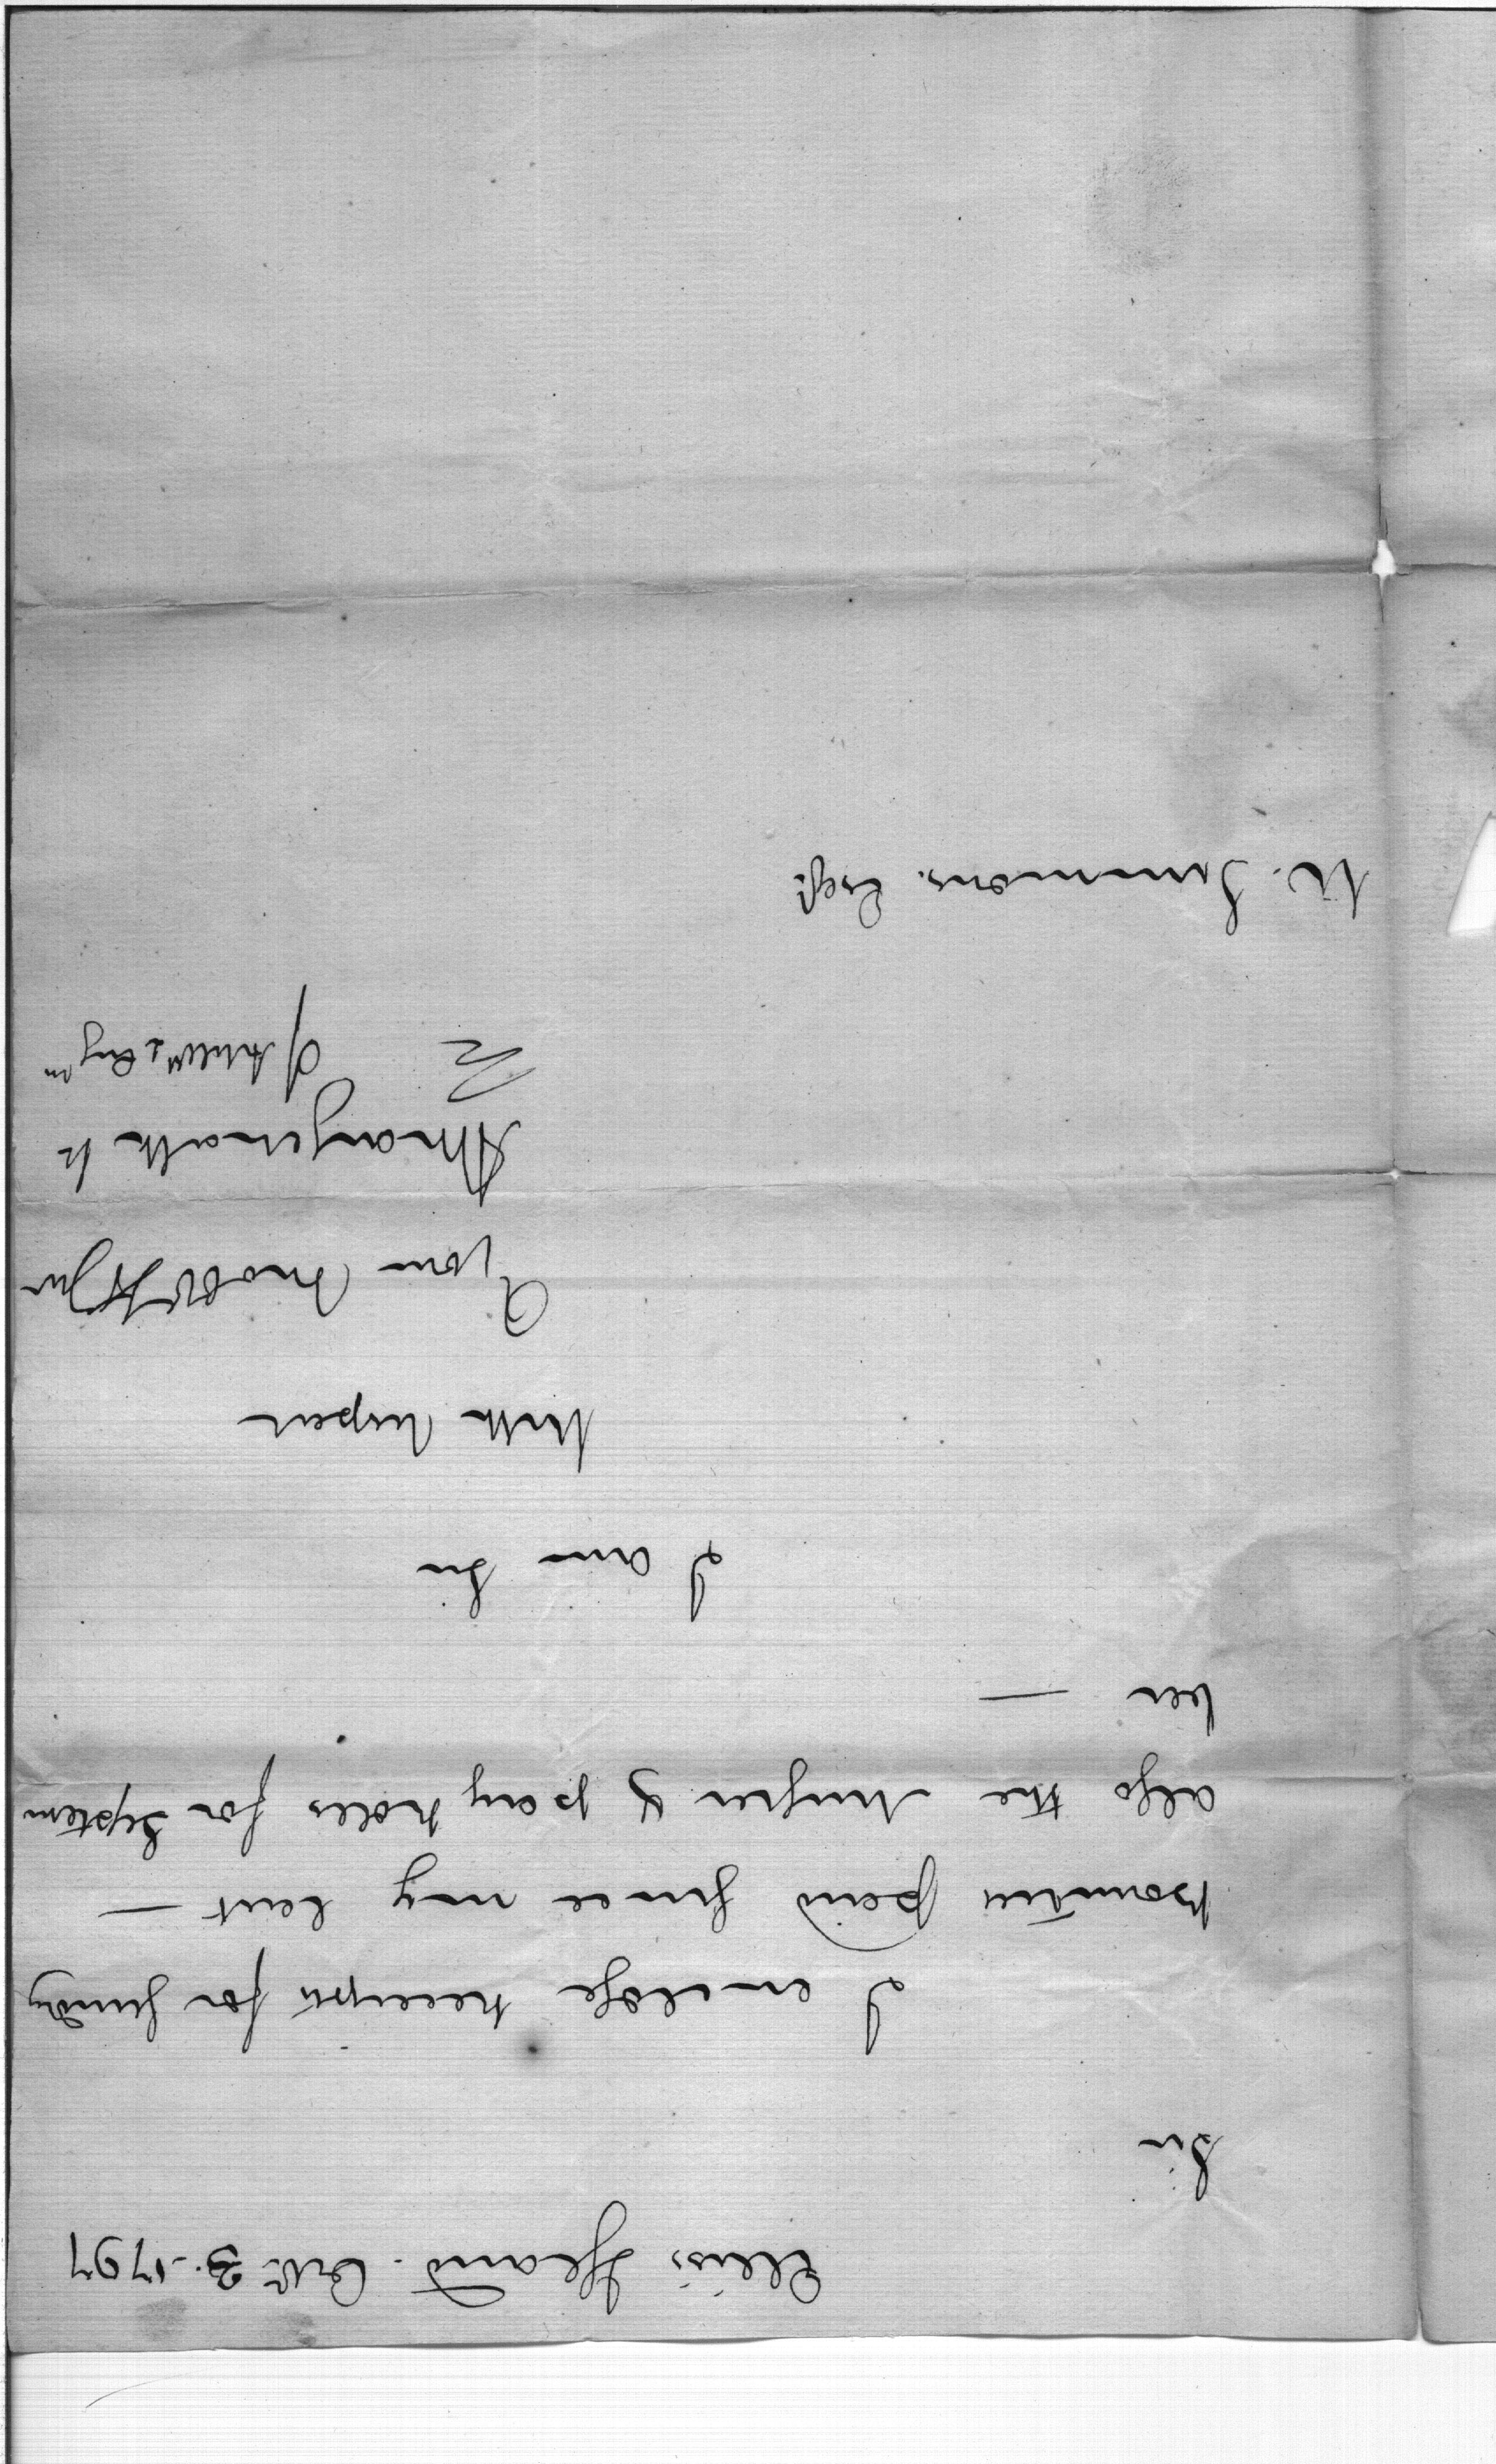 Ellis's Island. Octr. 3. 1797
Sir
I enclose receipts for sundry
bounties paid since my last —
also the Muster & pay rolls for Septem
ber —
I am Sir
With respect
Your most
Lt
of Artillts & Engrs
W. Simmons. Esqr.